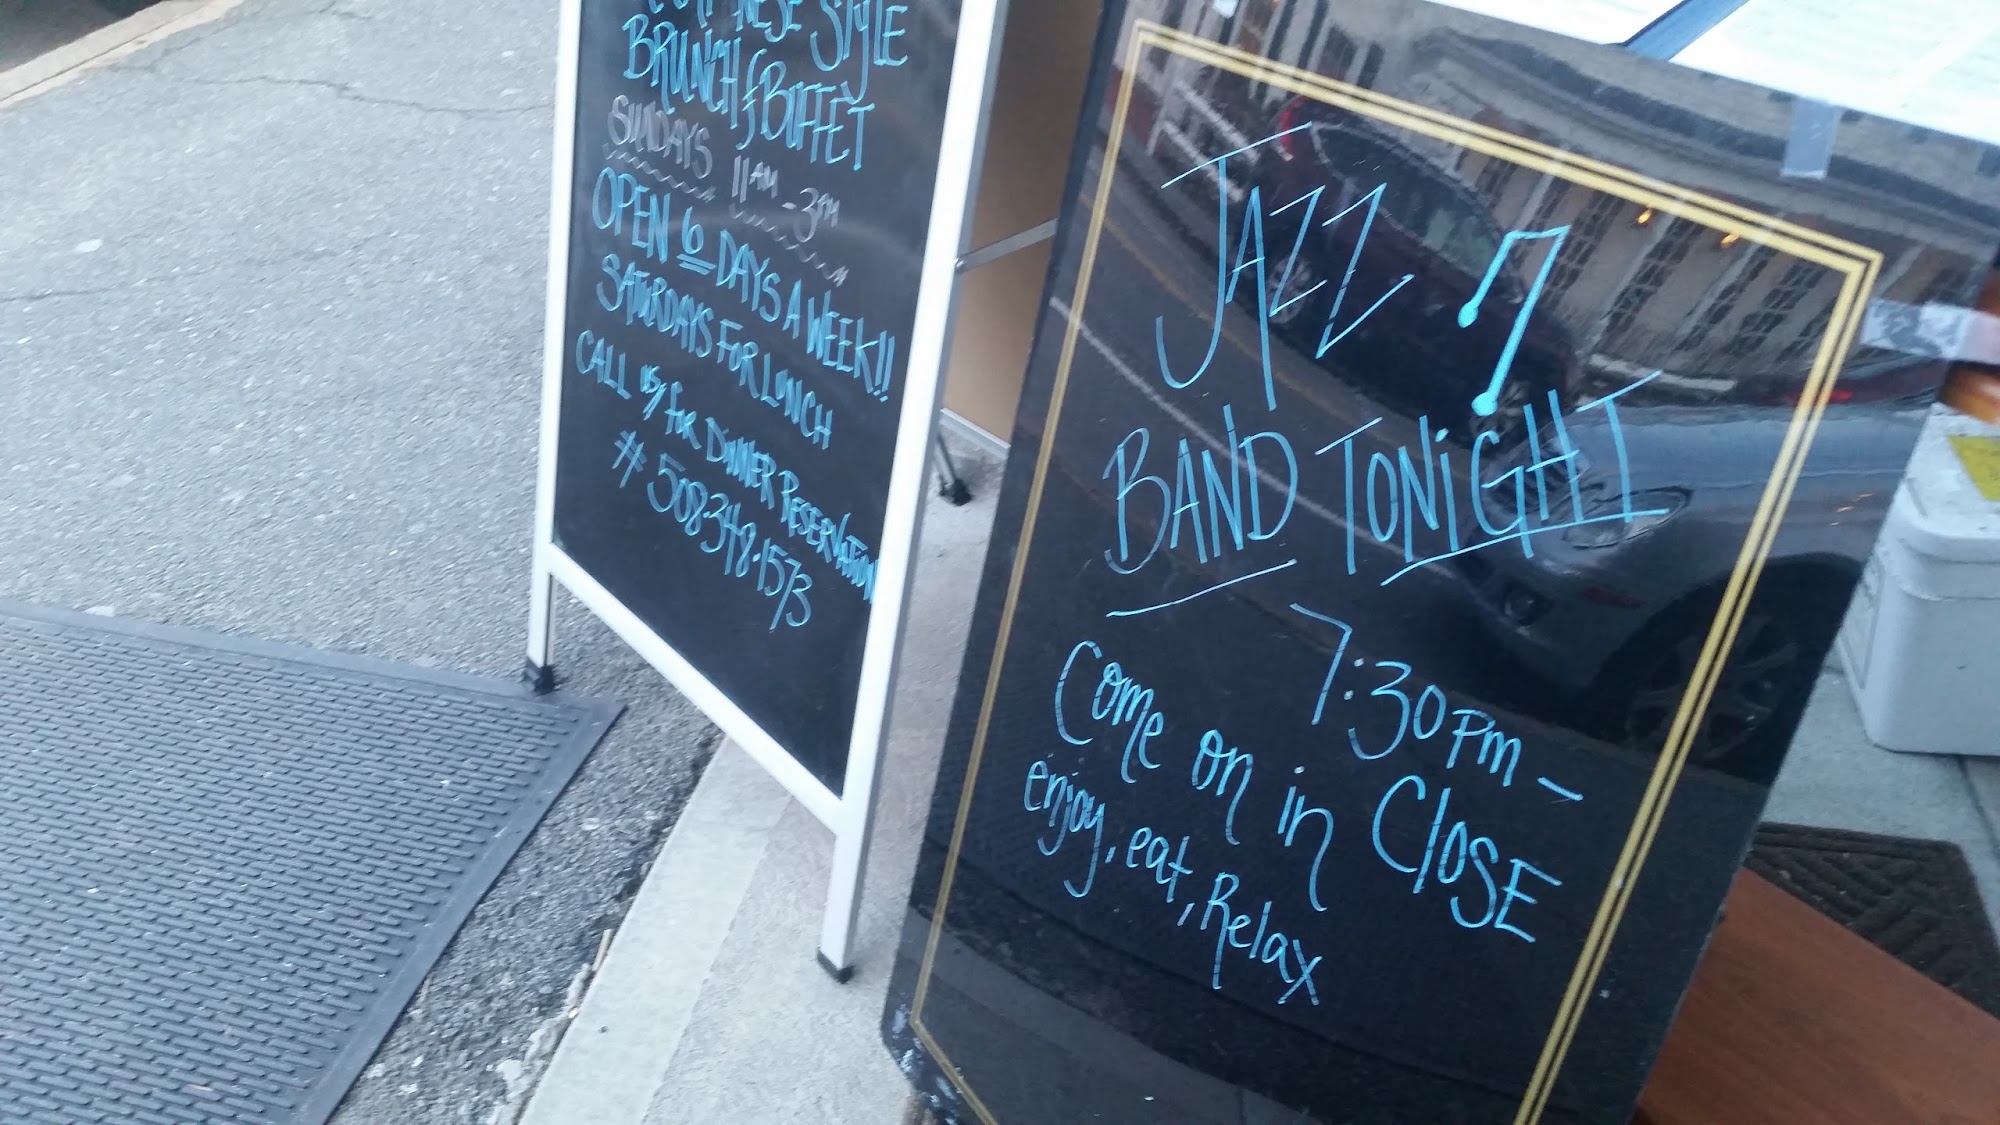 STYLE
BRUNCH & BUFFET
SUNDAYS 11AM - 3PM
OPEN 6 DAYS A WEEK!!
SATURDAYS FOR LUNCH
CALL us for DINNER RESERVATION
# 508.348.1573
JAZZ
BAND TONiGHT
7:30PM -
Come on in CLOSE
enjoy, eat, Relax